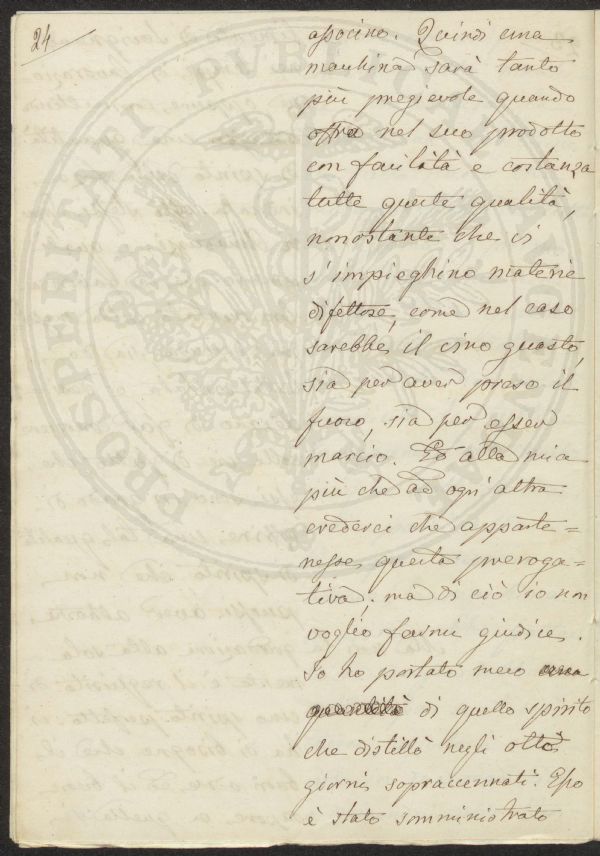 24
associno. Quindi una
machina sarà tanto
più pregievole quando
offra nel suo prodotto
con facilità e costanza
tutte queste qualità,
nonostante che ci
s'impieghino materie
difettose, come nel caso
sarebbe, il vino guasto,
sia per aver preso il
fuoco, sia per esser
marcio. Ed alla mia
più che ad ogn'altra
crederei che apparte=
nesse questa preroga=
tiva; ma di ciò io non
voglio farmi giudice.
Io ho portato meco una
quantità di quello spirito
che distillò negli otto
giorni sopraccennati. Esso
è stato somministrato
PROSPERITATI PUBL